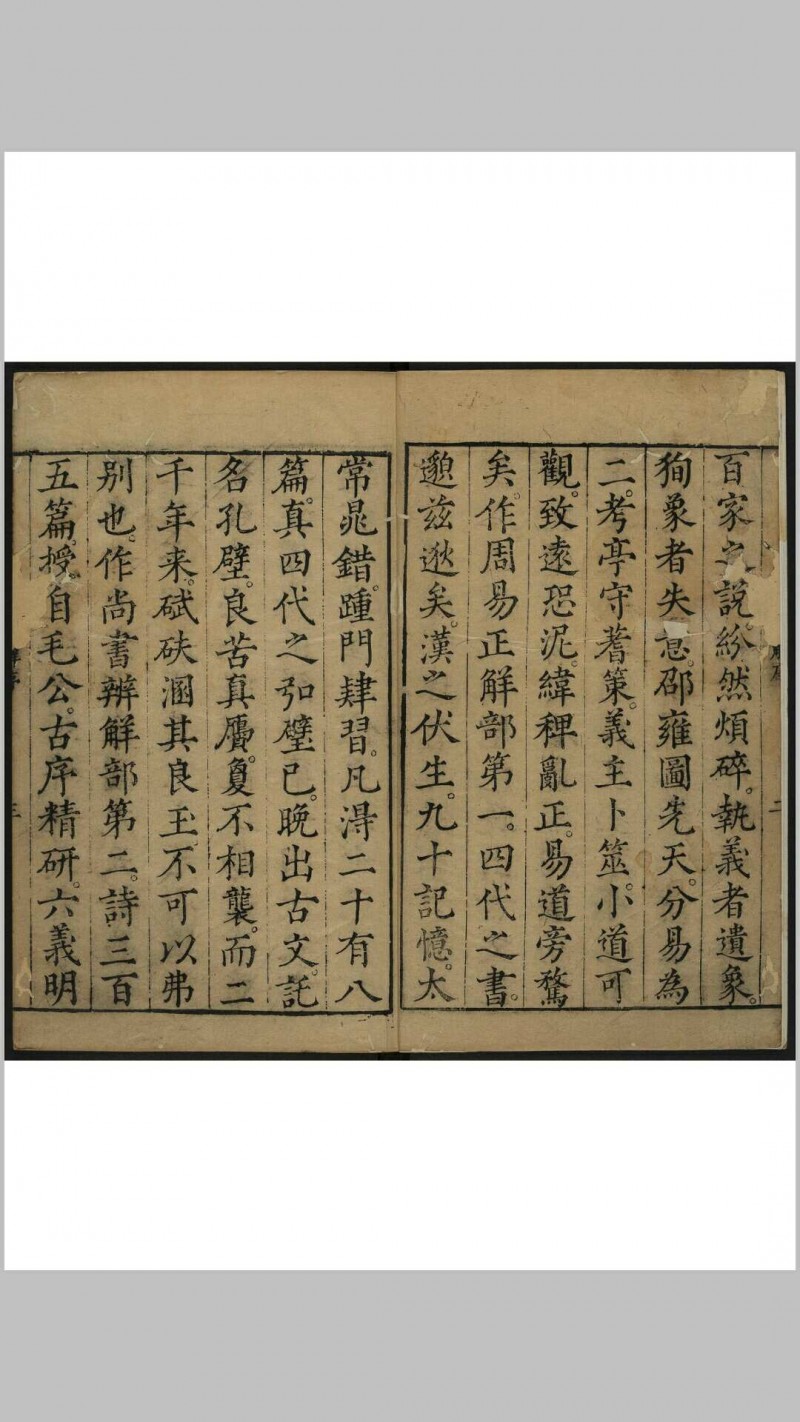 百家之說。紛然煩碎。執義者遺象。
狥象者失意。邵雍圖先天。分易為
二。考亭守蓍策。義主卜筮。小道可
觀。致遠恐泥。緯稗亂正。易道旁騖
矣。作周易正解部第一。四代之書。
邈茲逖矣。漢之伏生。九十記憶。太
常晁錯。踵門肄習。凡得二十有八
篇。真四代之弘璧已。晚出古文。託
名孔壁。良苦真贗。敻不相襲。而二
千年来。碔砆溷其良玉。不可以弗
别也。作尚書辨解部第二。詩三百
五篇。授自毛公。古序精研。六義明